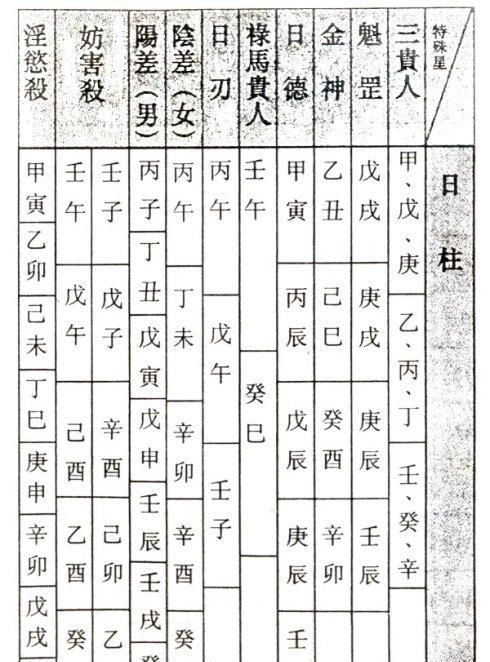 特殊星
日柱
三貴人
甲、戊、庚
乙、丙、丁
壬、癸、辛
魁罡
戊戌
庚戌
庚辰
壬辰
金神
乙丑
己巳
癸酉
辛卯
日德
甲寅
丙辰
戊辰
庚辰
壬
祿馬貴人
壬午
癸巳
日刃
丙午
戊午
壬子
陰差(女)
丙午
丁未
辛卯
辛酉
癸
陽差(男)
丙子
丁丑
戊寅
戊申
壬辰
壬戌
癸
妨害殺
壬子
戊子
辛酉
己卯
乙
壬午
戊午
己酉
乙酉
癸
淫慾殺
甲寅
乙卯
己未
丁巳
庚申
辛卯
戊戌